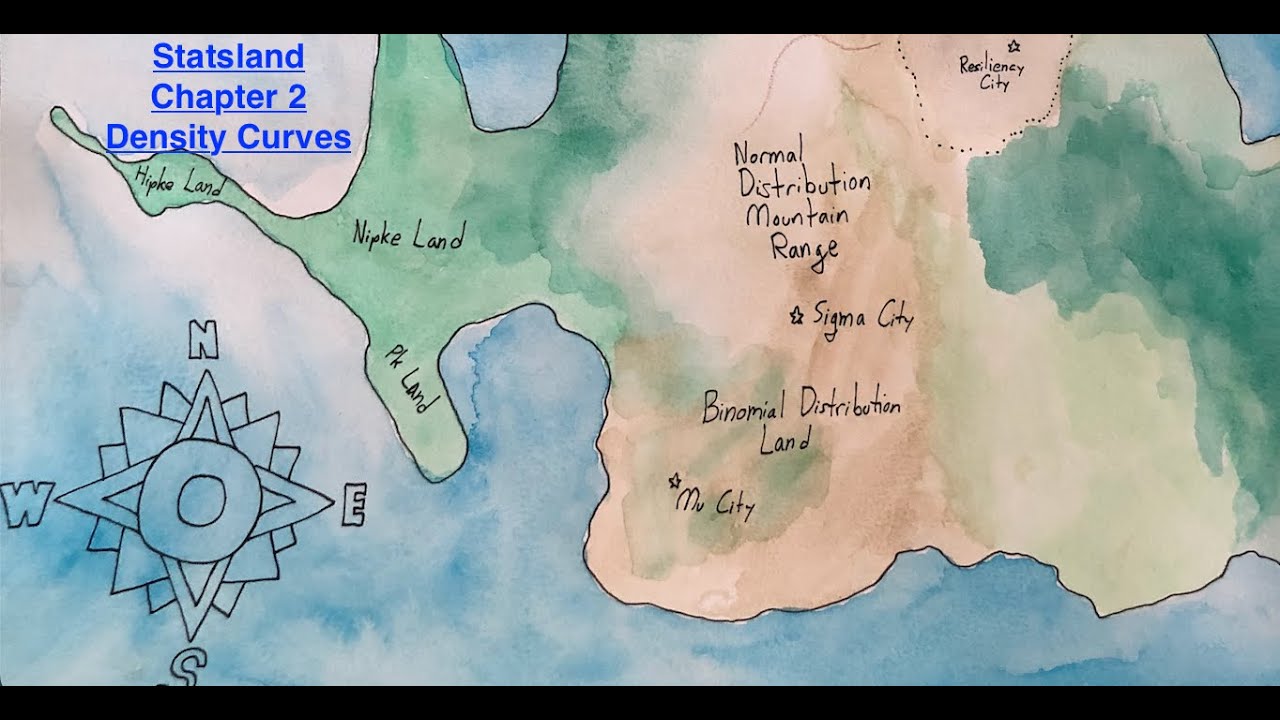 Statsland
Chapter 2
Density Curves
Resiliency
City
Hipke Land
Normal
Distribution
Mountain
Range
Nipke Land
Sigma City
Pk Land
Binomial Distribution
Land
Mu City
N
W
E
S